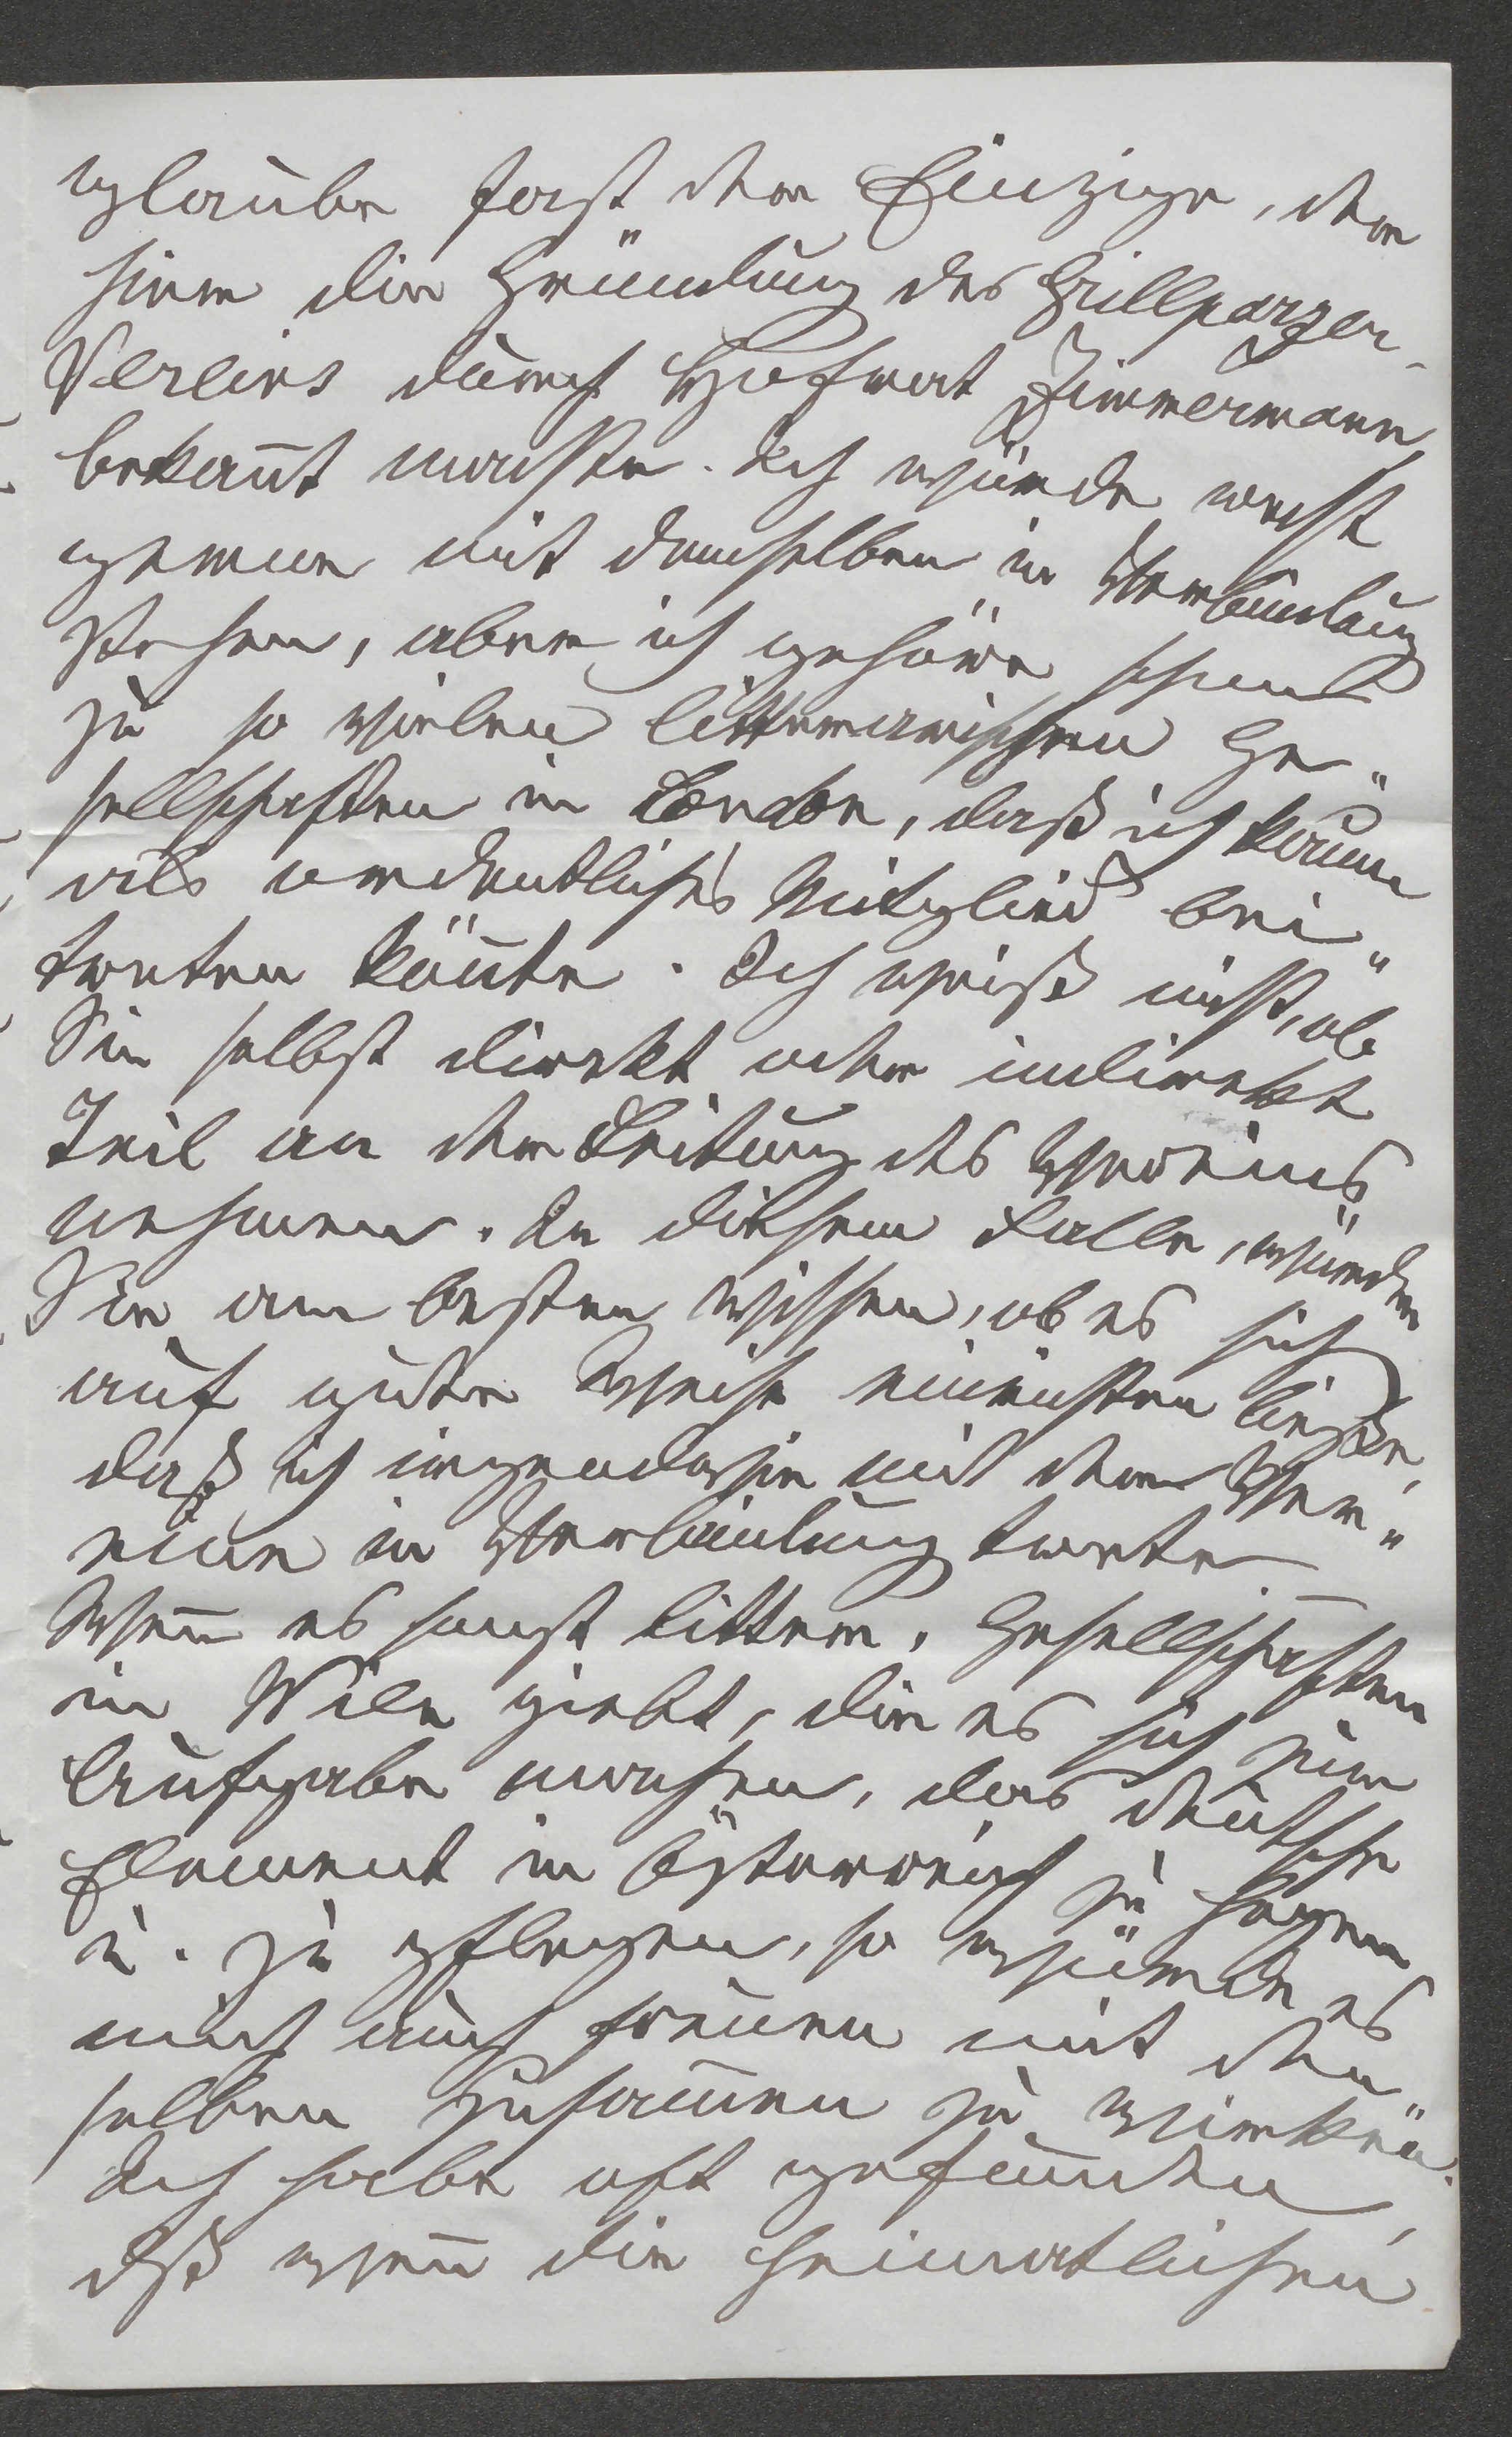 glaube fast der Einzige, der
hier die Gründung des Grillparzer-
Vereins durch Hofrat Zimmermann
bekañt machte. Ich würde recht
gerne mit demselben in Verbindung
stehen, aber ich gehöre schon
zu so vielen litterarischen Ge-
sellschaften in London, daß ich kaum
als ordentliches Mitglied bei-
treten köñte. Ich weiß nicht, ob
Sie selbst direkt oder indirekt
Teil an der Leitung des Vereins
nehmen. In diesem Falle, würden
Sie am besten wissen, ob es sich
auf gute Weise einrichten ließe,
daß ich irgendwie mit dem Ver-
eine in Verbindung trete.
Weñ es sonst litterar. Gesellschaften
in Wien giebt, die es sich zur
Aufgabe machen, das deutsche
Element in Österreich zu hegen
u. zu pflegen, so würde es
mich auch freuen mit den-
selben zusam̄en zu wirken.
Ich habe oft gefunden,
dß weñ die heimatlichen